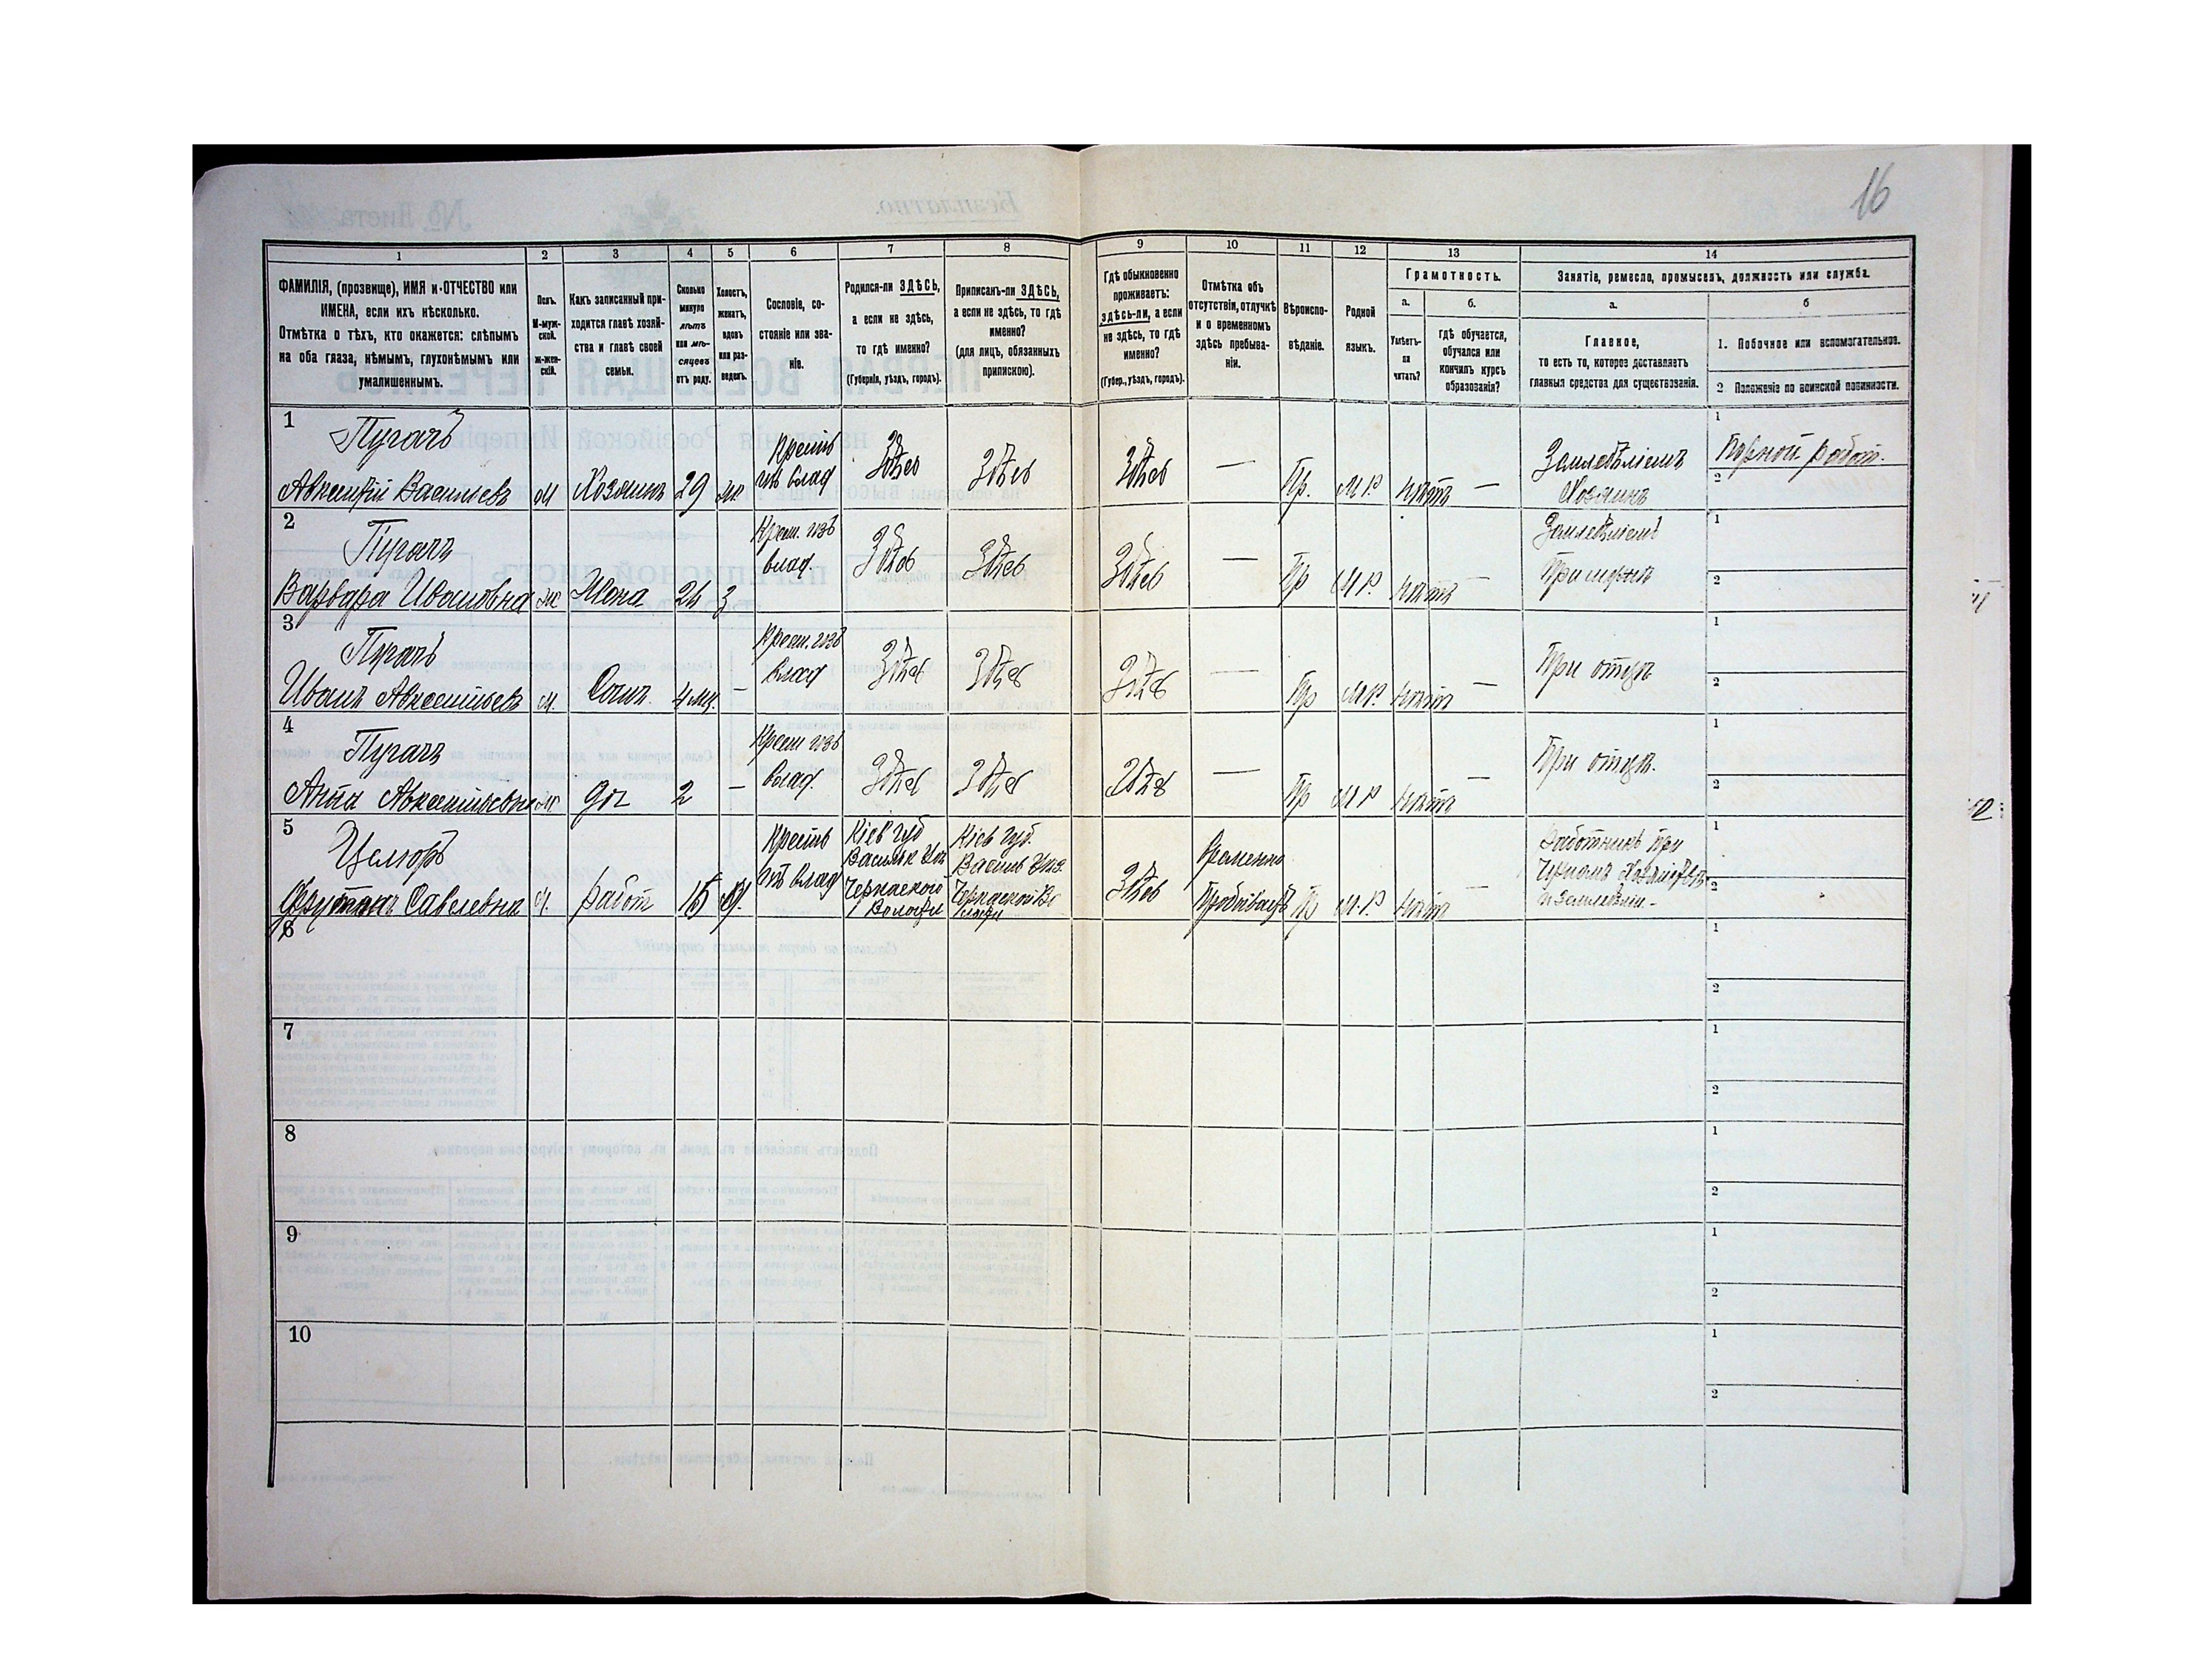 16
1
2
3
4
5
6
7
8
9
10
11
12
13
14
ФАМИЛІЯ, (прозвище), ИМЯ и ОТЧЕСТВО или
ИМЕНА, если ихъ нѣсколько.
Отмѣтка о тѣхъ, кто окажется: слѣпымъ
на оба глаза, нѣмымъ, глухонѣмымъ или
умалишеннымъ.
Полъ.
М-муж-
ской.
Ж-жен-
скій.
Какъ записанный при-
ходится главѣ хозяй-
ства и главѣ своей
семьи.
Сколько
минуло
лѣтъ
или мѣ-
сяцевъ
отъ роду.
Холостъ,
женатъ,
вдовъ
или раз-
веденъ.
Сословіе, со-
стояніе или зва-
ніе.
Родился-ли ЗДѢСЬ,
а если не здѣсь,
то гдѣ именно?
(Губернія, уѣздъ, городъ).
Приписанъ-ли ЗДѢСЬ,
а если не здѣсь, то гдѣ
именно?
(для лицъ, обязанныхъ
припискою).
Гдѣ обыкновенно
проживаетъ:
здѣсь-ли, а если
не здѣсь, то гдѣ
именно?
(Губер., уѣздъ, городъ).
Отмѣтка объ
отсутствіи, отлучкѣ
и о временномъ
здѣсь пребыва-
ніи.
Вѣроиспо-
вѣданіе.
Родной
языкъ.
Грамотность.
а.
Умѣетъ-
ли
читать?
б.
гдѣ обучается,
обучался или
кончилъ курсъ
образованія?
Занятіе, ремесло, промыселъ, должность или служба.
а.
Главное,
то есть то, которое доставляетъ
главныя средства для существованія.
б
1. Побочное или вспомогательное.
2 Положеніе по воинской повинности.
1
Пугачъ
Авксентій Васильевъ
М
Хозяинъ
29
ж
Крестьянъ
изъ влад
Здѣсь
Здѣсь
Здѣсь
—
Пр.
М Р.
нѣтъ
—
Земледѣліемъ
Хозяинъ
1
2
2
Пугачъ
Варвара Ивановна
Ж
Жена
24
З
Крест. изъ
влад.
Здѣсь
Здѣсь
Здѣсь
—
Пр
М Р.
нѣтъ
—
Земледѣліемъ
При мужѣ
1
2
3
Пугачъ
Иванъ Авксентьевъ
М.
Сынъ.
4 мц.
—
Крест. изъ
влад
Здѣсь
Здѣсь
Здѣсь
—
Пр
М Р.
нѣтъ
—
При отцѣ
1
2
4
Пугачъ
Анна Авксентьевна
Ж
Доч
2
—
Крест изъ
влад.
Здѣсь
Здѣсь
Здѣсь
—
Пр
М Р
нѣтъ
—
При отцѣ.
1
2
5
Савелевна
М.
работ
15
влад
Кіев губ
Кіев губ.
Здѣсь
временно
Пр
М. Р.
нѣтъ
—
Работникъ при
1
2
6
1
2
7
1
2
8
1
2
9
1
2
10
1
2